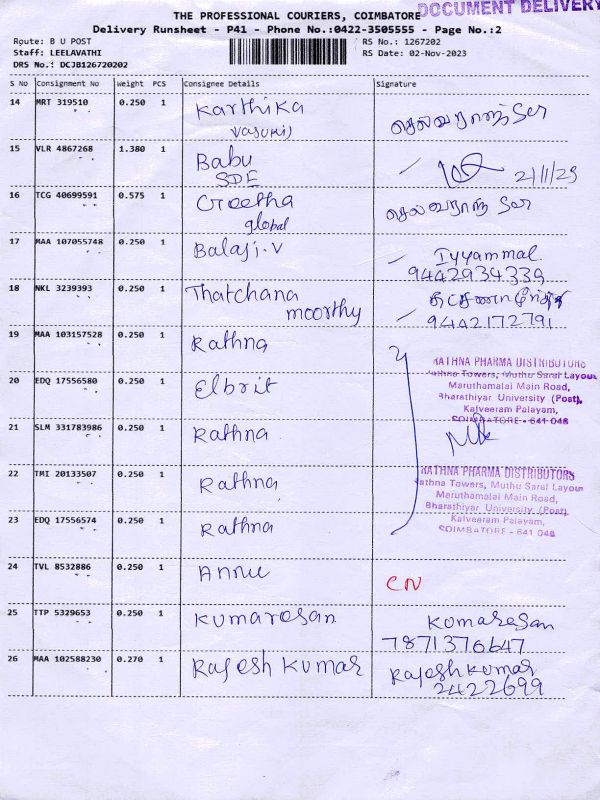 DOCUMENT DELIVERY
THE PROFESSIONAL COURIERS, COIMBATORE
Delivery Runsheet - P41 - Phone No.:0422-3505555 - Page No.:2
Route: B U POST
Staff: LEELAVATHI
DRS No.: DCJB126720202
RS No.: 1267202
RS Date: 02-Nov-2023
S No Consignment No Weight PCS Consignee Details Signature
14 MRT 319510 0.250 1 Karthika
செல்வராஜ் Ser
15 VLR 4867268 1.380 1 Babu
SDE 2/11/23
16 TCG 40699591 0.575 1 Geetha செல்வராஜ் Ser
global
17 MAA 107055748 0.250 1 Balaji.V Iyyammal
9442934339
18 NKL 3239393 0.250 1 Thatchana
moorthy 9442172791
19 MAA 103157528 0.250 1 Rathna
RATHNA PHARMA DISTRIBUTORS
Rathna Towers, Muthu Saral Layou
20 EDQ 17556580 0.250 1 Elbrit Maruthamalai Main Road,
Bharathiyar University (Post),
Kalveeram Palayam,
COIMBATORE - 641 046
21 SLM 331783986 0.250 1 Rathna
22 TMI 20133507 0.250 1 Rathna
RATHNA PHARMA DISTRIBUTORS
Rathna Towers, Muthu Saral Layou
Maruthamalai Main Road,
Bharathiyar University (Post)
23 EDQ 17556574 0.250 1 Rathna Kalveeram Palayam,
COIMBATORE - 641 046
24 TVL 8532886 0.250 1 Annu
CN
25 TTP 5329653 0.250 1 Kumaresan Komaresan
7871376647
26 MAA 102588230 0.270 1 Rajesh Kumar Rajesh Kumar
2422699